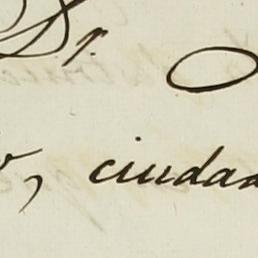 Dr.
, ciudad